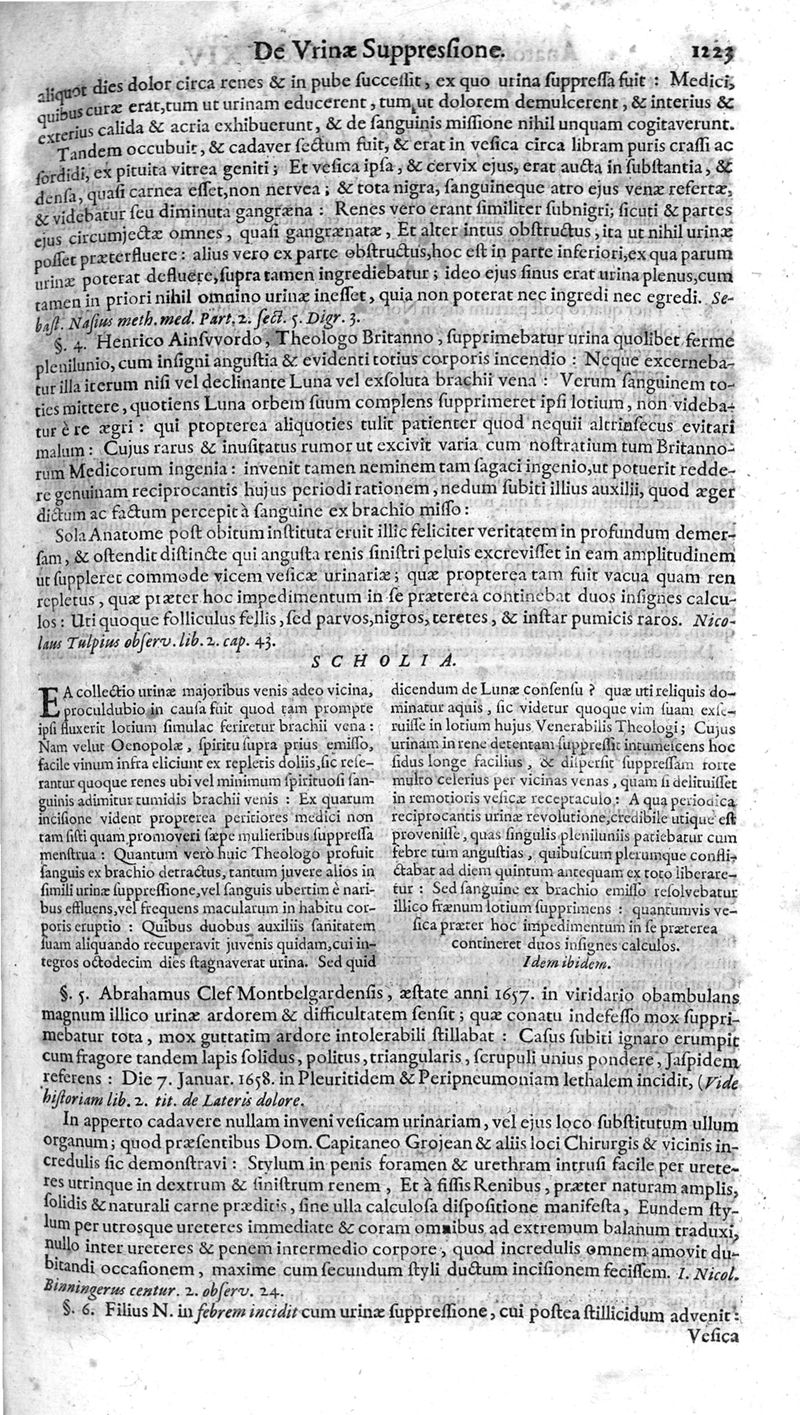 De Vrinæ Suppreſſione. 1223
aliquot dies dolor circa renes & in pube ſucceſſit, ex quo urina ſuppreſſa fuit : Medici,
quibus curæ erat, tum ut urinam educerent, tum ut dolorem demulcerent, & interius &
exterius calida & acria exhibuerunt, & de ſanguinis miſſione nihil unquam cogitaverunt.
Tandem occubuit, & cadaver ſectum fuit, & erat in veſica circa libram puris craſſi ac
ſordidi, ex pituita vitrea geniti ; Et veſica ipſa, & cervix ejus, erat aucta in ſubſtantia, &
denſa, quaſi carnea eſſet, non nervea ; & tota nigra, ſanguineque atro ejus venæ refertæ,
& videbatur ſeu diminuta gangræna : Renes vero erant ſimiliter ſubnigri; ſicuti & partes
ejus circumjectæ omnes, quaſi gangrænatæ, Et alter intus obſtructus, ita ut nihil urinæ
poſſet præterfluere : alius vero ex parte obſtructus, hoc eſt in parte inferiori, ex qua parum
urinæ poterat defluere, ſupra tamen ingrediebatur ; ideo ejus ſinus erat urina plenus, cum
tamen in priori nihil omnino urinæ ineſſet, quia non poterat nec ingredi nec egredi. Se-
baſt. Naſius meth. med. Part. 2. ſect. 5. Digr. 3.
§. 4. Henrico Ainſvvordo, Theologo Britanno, ſupprimebatur urina quolibet ferme
plenilunio, cum inſigni anguſtia & evidenti totius corporis incendio : Neque excerneba-
tur illa iterum niſi vel declinante Luna vel exſoluta brachii vena : Verum ſanguinem to-
ties mittere, quotiens Luna orbem ſuum complens ſupprimeret ipſi lotium, non videba-
tur è re ægri : qui propterea aliquoties tulit patienter quod nequii altrinſecus evitari
malum : Cujus rarus & inuſitatus rumor ut excivit varia cum noſtratium tum Britanno-
rum Medicorum ingenia : invenit tamen neminem tam ſagaci ingenio, ut potuerit redde-
re genuinam reciprocantis hujus periodi rationem, nedum ſubiti illius auxilii, quod æger
dictum ac factum percepit à ſanguine ex brachio miſſo :
Sola Anatome poſt obitum inſtituta eruit illic feliciter veritatem in profundum demer-
ſam, & oſtendit diſtincte qui anguſta renis ſiniſtri peluis excreviſſet in eam amplitudinem
ut ſuppleret commode vicem veſicæ urinariæ ; quæ propterea tam fuit vacua quam ren
repletus, quæ præter hoc impedimentum in ſe præterea continebat duos inſignes calcu-
los : Uti quoque folliculus fellis, ſed parvos, nigros, teretes, & inſtar pumicis raros. Nico-
laus Tulpius obſerv. lib. 2. cap. 43.
SCHOLIA.
EA collectio urinæ majoribus venis adeo vicina,
proculdubio in cauſa fuit quod tam prompte
ipſi fluxerit lotium ſimulac feriretur brachii vena :
Nam velut Oenopolæ, ſpiritu ſupra prius emiſſo,
facile vinum infra eliciunt ex repletis doliis, ſic reſe-
rantur quoque renes ubi vel minimum ſpirituoſi ſan-
guinis adimitur tumidis brachii venis : Ex quarum
inciſione vident propterea peritiores medici non
tam ſiſti quam promoveri ſæpe mulieribus ſuppreſſa
menſtrua : Quantum verò huic Theologo profuit
ſanguis ex brachio detractus, tantum juvere alios in
ſimili urinæ ſuppreſſione, vel ſanguis ubertim è nari-
bus effluens, vel frequens macularum in habitu cor-
poris eruptio : Quibus duobus auxiliis ſanitatem
ſuam aliquando recuperavit juvenis quidam, cui in-
tegros octodecim dies ſtagnaverat urina. Sed quid
dicendum de Lunæ conſenſu ? quæ uti reliquis do-
minatur aquis, ſic videtur quoque vim ſuam exſe-
ruiſſe in lotium hujus Venerabilis Theologi ; Cujus
urinam in rene detentam ſuppreſſit intumeſcens hoc
ſidus longe facilius, & diſperſit ſuppreſſam forte
multo celerius per vicinas venas, quam ſi delituiſſet
in remotioris veſicæ receptaculo : A qua periodica
reciprocantis urinæ revolutione, credibile utique eſt
proveniſſe, quas ſingulis pleniluniis patiebatur cum
febre tum anguſtias, quibuſcum plerumque confli-
ctabat ad diem quintum antequam ex toto liberare-
tur : Sed ſanguine ex brachio emiſſo reſolvebatur
illico frænum lotium ſupprimens : quantumvis ve-
ſica præter hoc impedimentum in ſe præterea
contineret duos inſignes calculos.
Idem ibidem.
§. 5. Abrahamus Clef Montbelgardenſis, æſtate anni 1657. in viridario obambulans
magnum illico urinæ ardorem & difficultatem ſenſit ; quæ conatu indefeſſo mox ſuppri-
mebatur tota, mox guttatim ardore intolerabili ſtillabat : Caſus ſubiti ignaro erumpit
cum fragore tandem lapis ſolidus, politus, triangularis, ſcrupuli unius pondere, Jaſpidem
referens : Die 7. Januar. 1658. in Pleuritidem & Peripneumoniam lethalem incidit, (Vide
hiſtoriam lib. 2. tit. de Lateris dolore.
In apperto cadavere nullam inveni veſicam urinariam, vel ejus loco ſubſtitutum ullum
organum ; quod præſentibus Dom. Capitaneo Grojean & aliis loci Chirurgis & vicinis in-
credulis ſic demonſtravi : Stylum in penis foramen & urethram intruſi facile per urete-
res utrinque in dextrum & ſiniſtrum renem, Et à fiſſis Renibus, præter naturam amplis,
ſolidis & naturali carne præditis, ſine ulla calculoſa diſpoſitione manifeſta, Eundem ſty-
lum per utroſque ureteres immediate & coram omnibus ad extremum balanum traduxi,
nullo inter ureteres & penem intermedio corpore, quod incredulis omnem amovit du-
bitandi occaſionem, maxime cum ſecundum ſtyli ductum inciſionem feciſſem. I. Nicol.
Binningerus centur. 2. obſerv. 24.
§. 6. Filius N. in febrem incidit cum urinæ ſuppreſſione, cui poſtea ſtillicidum advenit :
Veſica